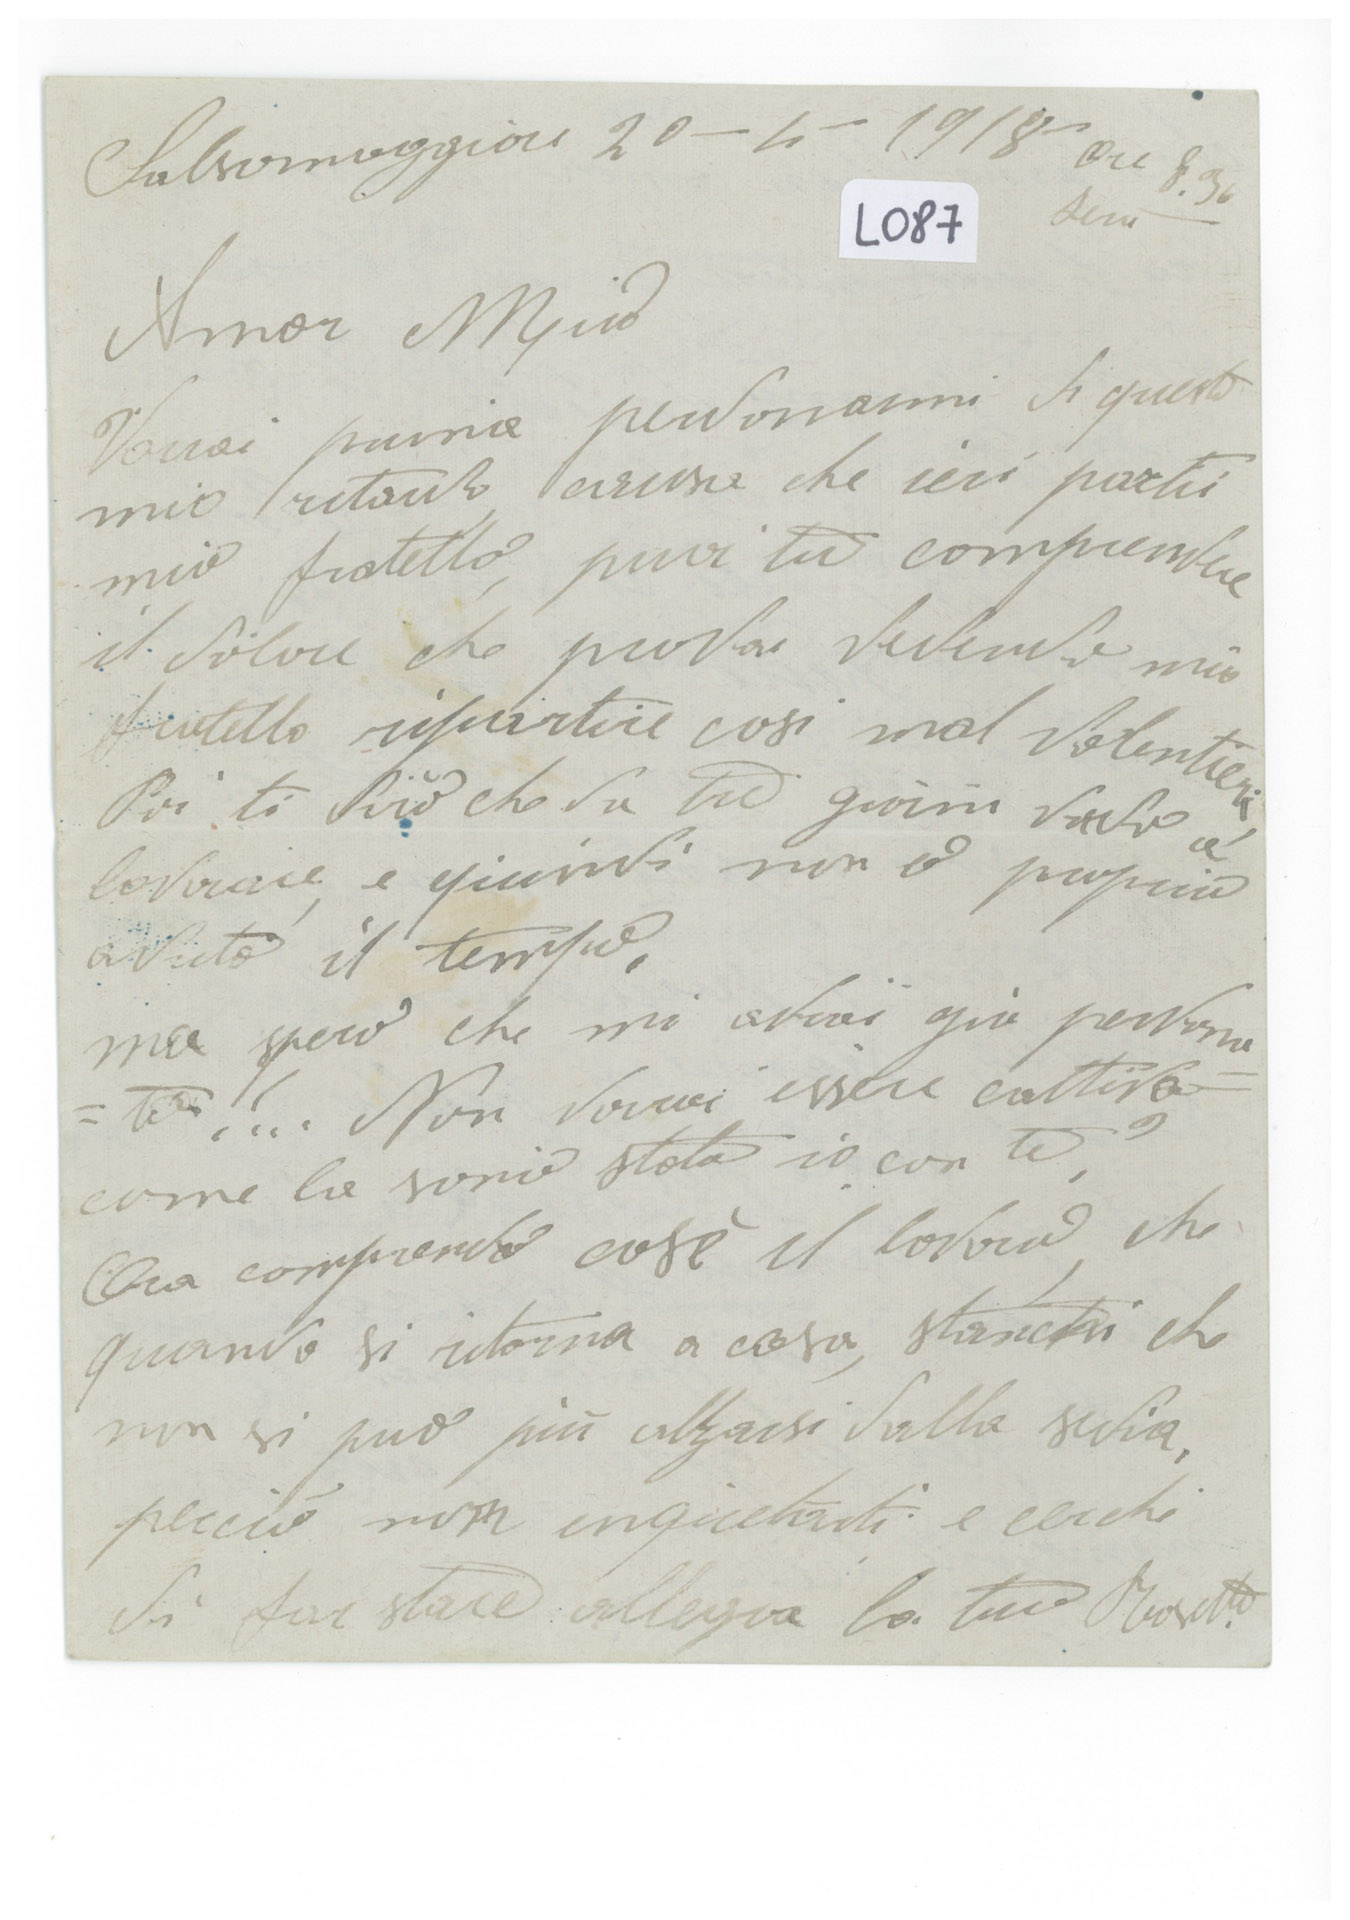 Salsomaggiore 20 - 4 - 1918 ore 8.30
sera
L087
Amor Mio
Vorrai prima perdonarmi di questo
mio ritardo, causa che ieri partii
mio fratello, puoi tu comprendere
il dolore che provai vedendo mio
fratello ripartire cosi mal volentieri
Poi ti dirò che da tre giorni vado a
lavorare, e quindi non ò proprio
avuto il tempo.
ma spero che mi avrai già perdona
=to !... Non vorrai essere cattivo
come la sono stata io con te?
Ora comprendo cosè il lavoro, che
quando si ritorna a casa, stanchi che
non si può più alzarsi dalla sedia,
perciò non inquietarti e cerchi
di far stare allegra la tua Rosetta.